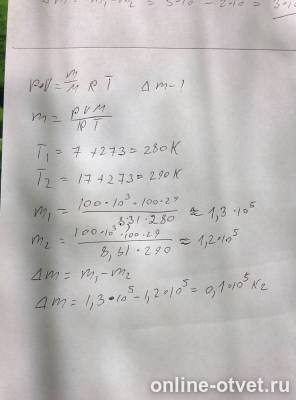 pV = m/M RT   Δm - ?
m = pVM/RT
T₁ = 7 + 273 = 280 K
T₂ = 17 + 273 = 290 K
m₁ = 100·10³·100·29/8.31·280 ≈ 1,3·10⁵
m₂ = 100·10³·100·29/8,31·290 ≈ 1,2·10⁵
Δm = m₁ - m₂
Δm = 1,3·10⁵ - 1,2·10⁵ = 0,1·10⁵ кг
online-otvet.ru